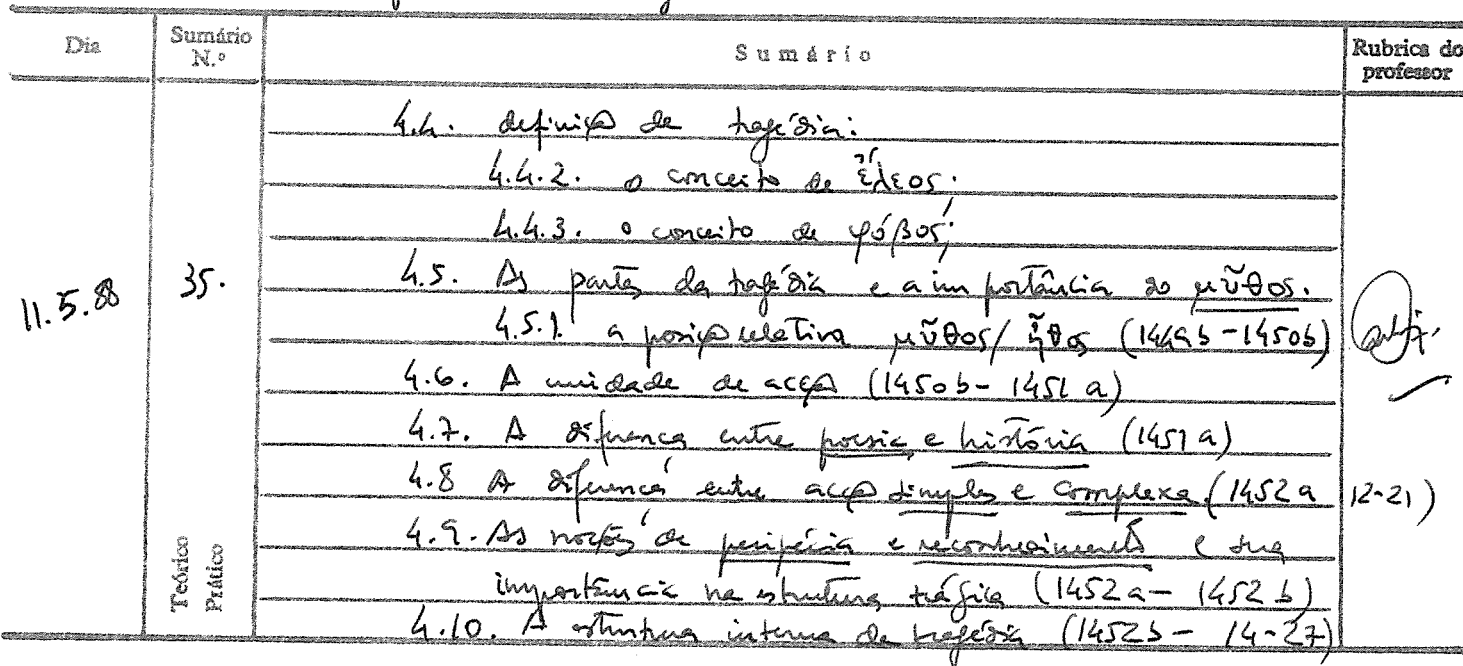 Dia Sumário N.º Sumário Rubrica do professor
4.4. definição de tragédia:
4.4.2. o conceito de ἔλεος.
4.4.3. o conceito de φόβος;
11.5.88 35. 4.5. As partes da tragédia e a importância do μῦθος.
4.5.1. a posição relativa μῦθος/ ἦθος (1449b-1450b)
4.6. A unidade de acção (1450b-1451a)
4.7. A diferença entre poesia e história (1451a)
4.8 A diferença entre acção simples e complexa (1452a 12-21)
4.9. As noções de peripécia e reconhecimento e sua
importância na estrutura trágica (1452a-1452b)
4.10. A estrutura interna da tragédia (1452b-14-27)
Teórico
Prático